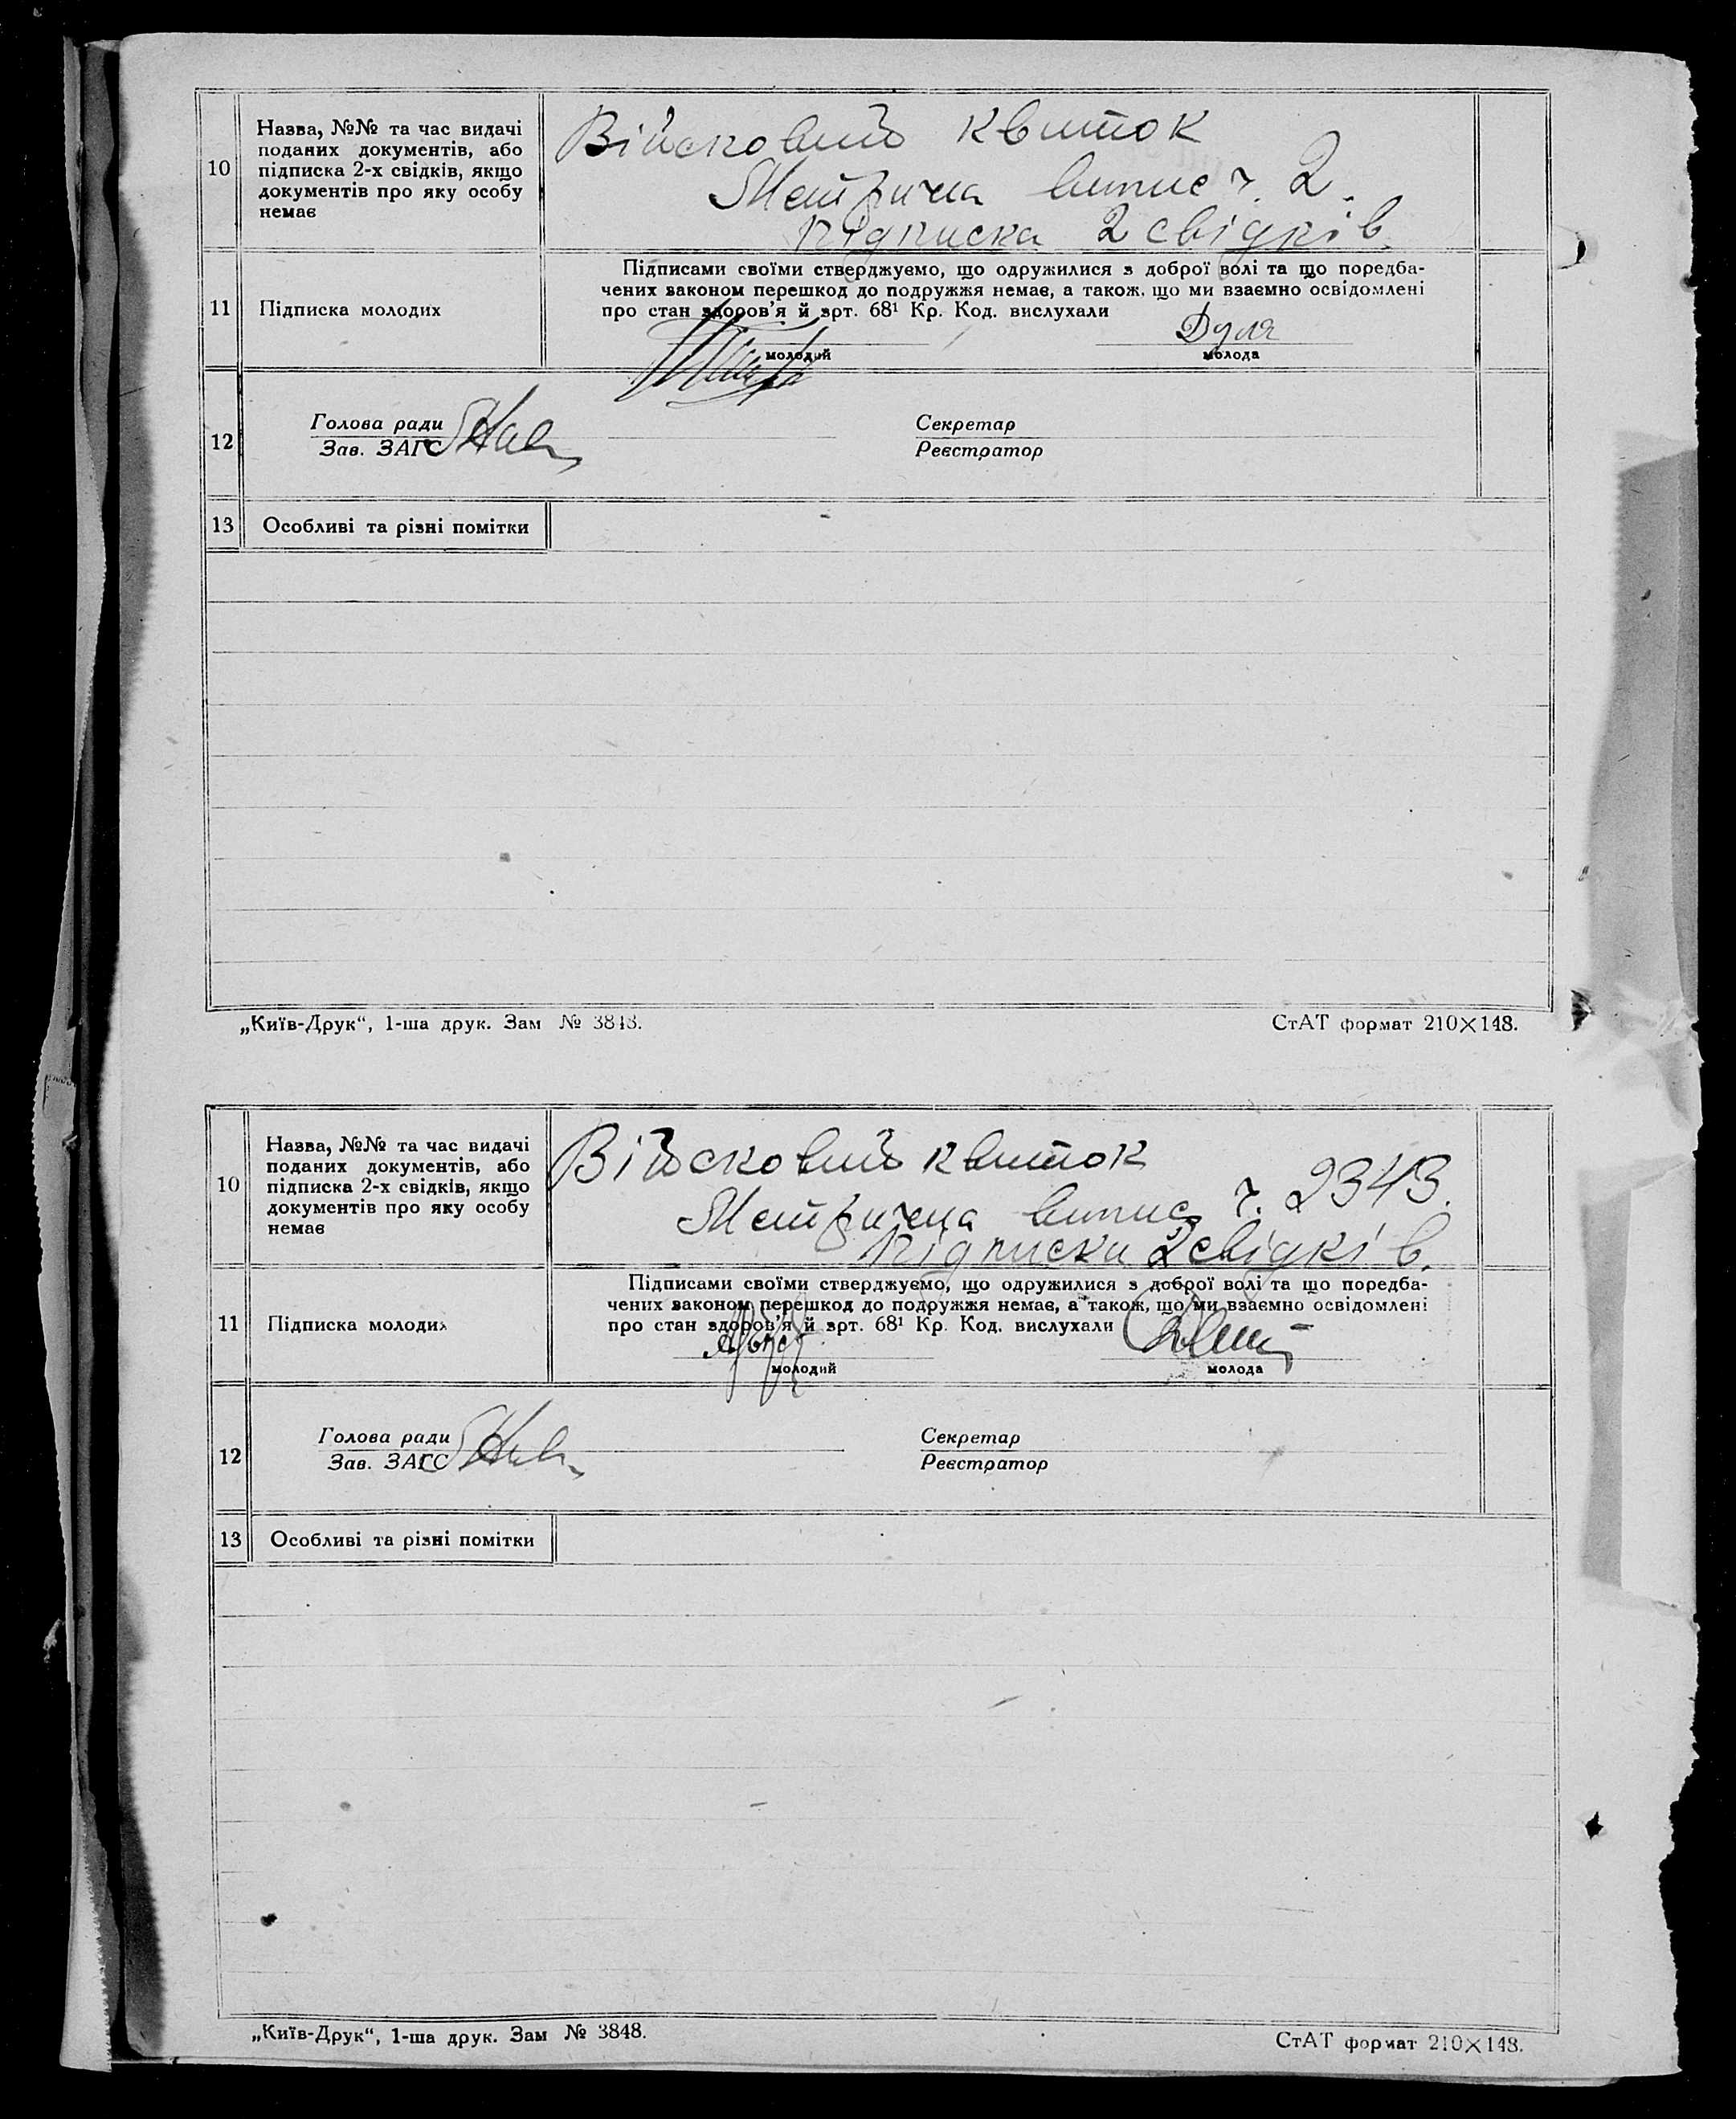 10
Назва, №№ та час видачі
поданих документів, або
підписка 2-х свідків, якщо
документів про яку особу
немає
Військовий квиток
Метрична випис ч. 2.
підписка 2 свідків.
11
Підписка молодих
Підписами своїми стверджуємо, що одружилися з доброї волі та що поредба-
чених законом перешкод до подружжя немає, а також, що ми взаємно освідомлені
про стан здоров'я й арт. 68¹ Кр. Код. вислухали
Дуля
молодий
молода
12
Голова ради
Зав. ЗАГС
Секретар
Реєстратор
13
Особливі та різні помітки
„Київ-Друк“, 1-ша друк. Зам № 3848.
СтАТ формат 210×148.
10
Назва, №№ та час видачі
поданих документів, або
підписка 2-х свідків, якщо
документів про яку особу
немає
Військовий квиток
Метрична випис ч. 2343.
підписка 2 свідків.
11
Підписка молодих
Підписами своїми стверджуємо, що одружилися з доброї волі та що поредба-
чених законом перешкод до подружжя немає, а також, що ми взаємно освідомлені
про стан здоров'я й арт. 68¹ Кр. Код. вислухали
молодий
молода
12
Голова ради
Зав. ЗАГС
Секретар
Реєстратор
13
Особливі та різні помітки
„Київ-Друк“, 1-ша друк. Зам № 3848.
СтАТ формат 210×148.